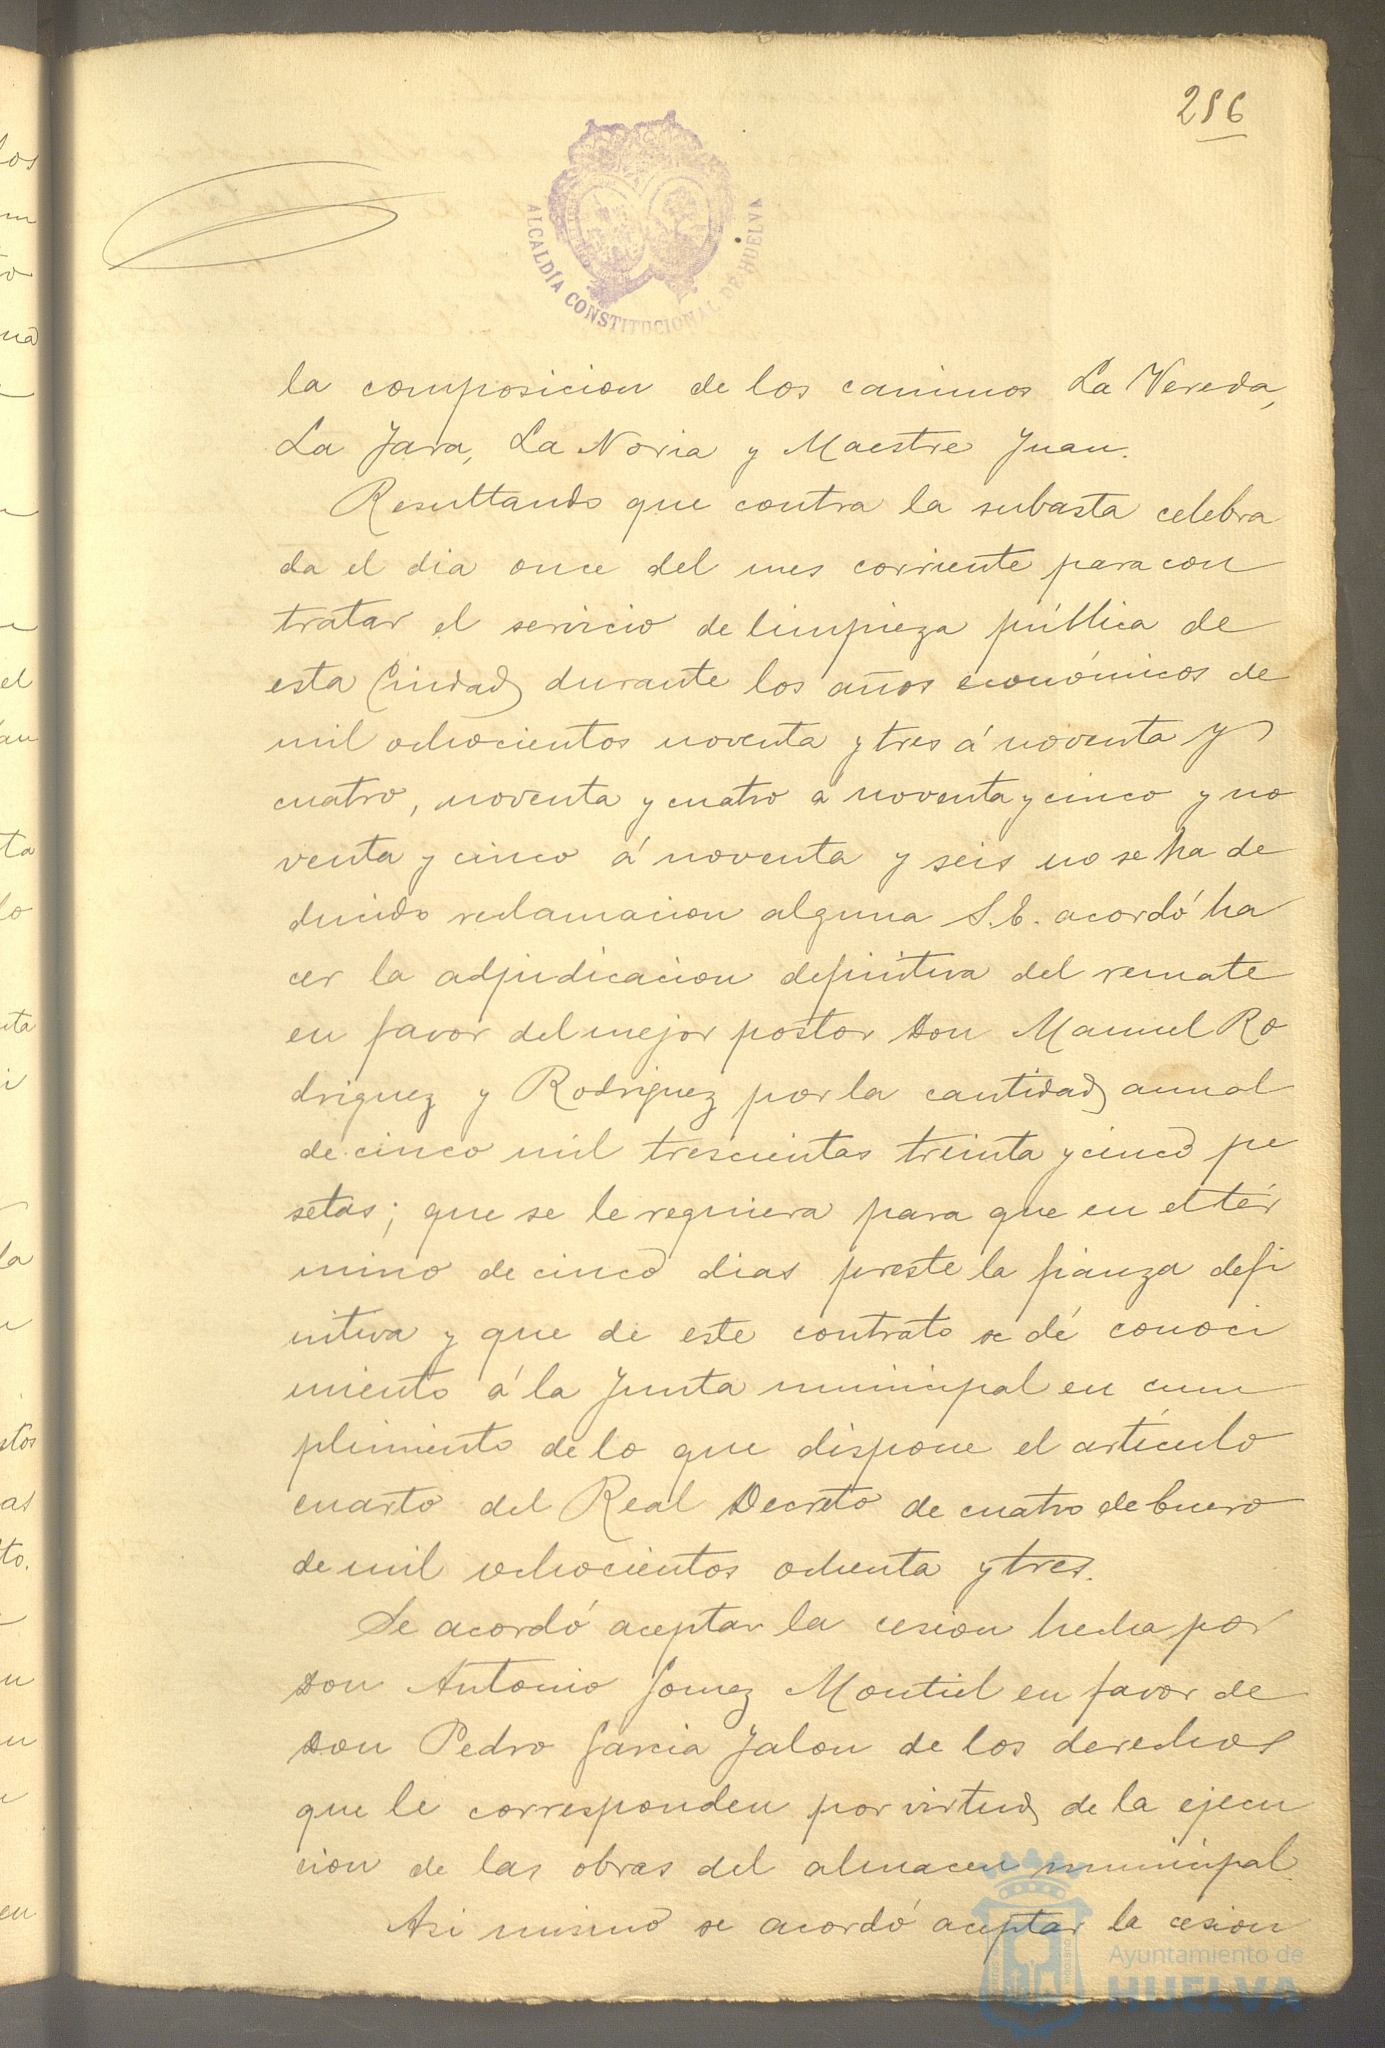 256
ALCALDÍA CONSTITUCIONAL DE HUELVA
la composicion de los caminos La Vereda,
La Jara, La Noria y Maestre Juan.
Resultando que contra la subasta celebra
da el dia once del mes corriente para con
tratar el servicio de limpieza pública de
esta Ciudad durante los años económicos de
mil ochocientos noventa y tres á noventa y
cuatro, noventa y cuatro a noventa y cinco y no
venta y cinco á noventa y seis no se ha de
ducido reclamacion alguna S.E. acordó ha
cer la adjudicacion definitiva del remate
en favor del mejor postor Don Manuel Ro
driguez y Rodriguez por la cantidad anual
de cinco mil trescientas treinta y cinco pe
setas; que se le requiera para que en el tér
mino de cinco dias preste la fianza defi
nitiva y que de este contrato se dé conoci
miento á la Junta municipal en cum
plimiento de lo que dispone el artículo
cuarto del Real Decreto de cuatro de Enero
de mil ochocientos ochenta y tres.
Se acordó aceptar la cesion hecha por
Don Antonio Gomez Montiel en favor de
Don Pedro Garcia Jalon de los derechos
que le corresponden por virtud de la ejecu
cion de las obras del almacen municipal.
Asi mismo se acordó aceptar la cesion
Ayuntamiento de
HUELVA